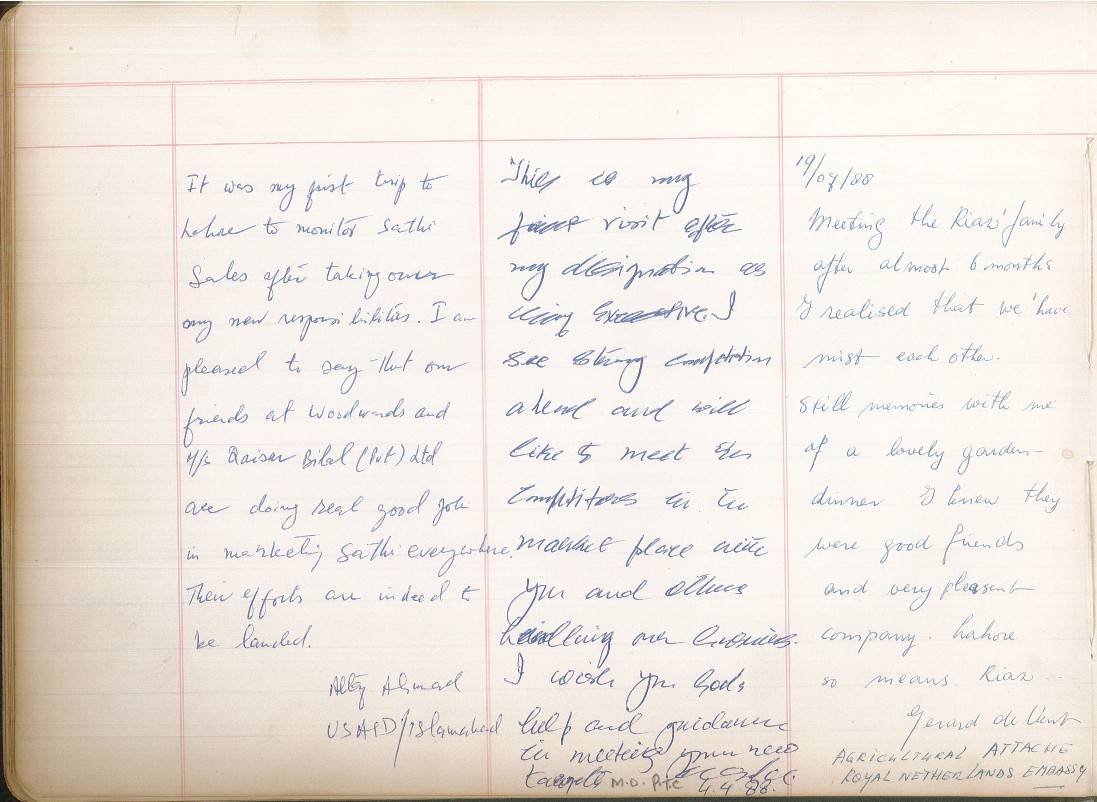 It was my first trip to
Lahore to monitor Sathi
Sales after taking over
my new responsibilities. I am
pleased to say that our
friends at Woodwards and
M/s Qaiser Bilal (Pvt) Ltd
are doing real good job
in marketing Sathi everywhere.
Their efforts are indeed to
be lauded.
Ahmad
USAID/Islamabad
This is my
first visit after
my designation as
Executive. I
see strong competition
ahead and will
like to meet the
Competitors in the
market place with
you and others
handling our business.
I wish you Gods
help and guidance
in meeting your new
targets
M.D. P.T.C
4.4.88.
19/04/88
Meeting the Riaz' family
after almost 6 months
I realised that we 'have
mist each other.
Still memories with me
of a lovely garden-
dinner I knew they
were good friends
and very pleasant
company. Lahore
so means Riaz
Gerard de
AGRICULTURAL ATTACHE
ROYAL NETHERLANDS EMBASSY